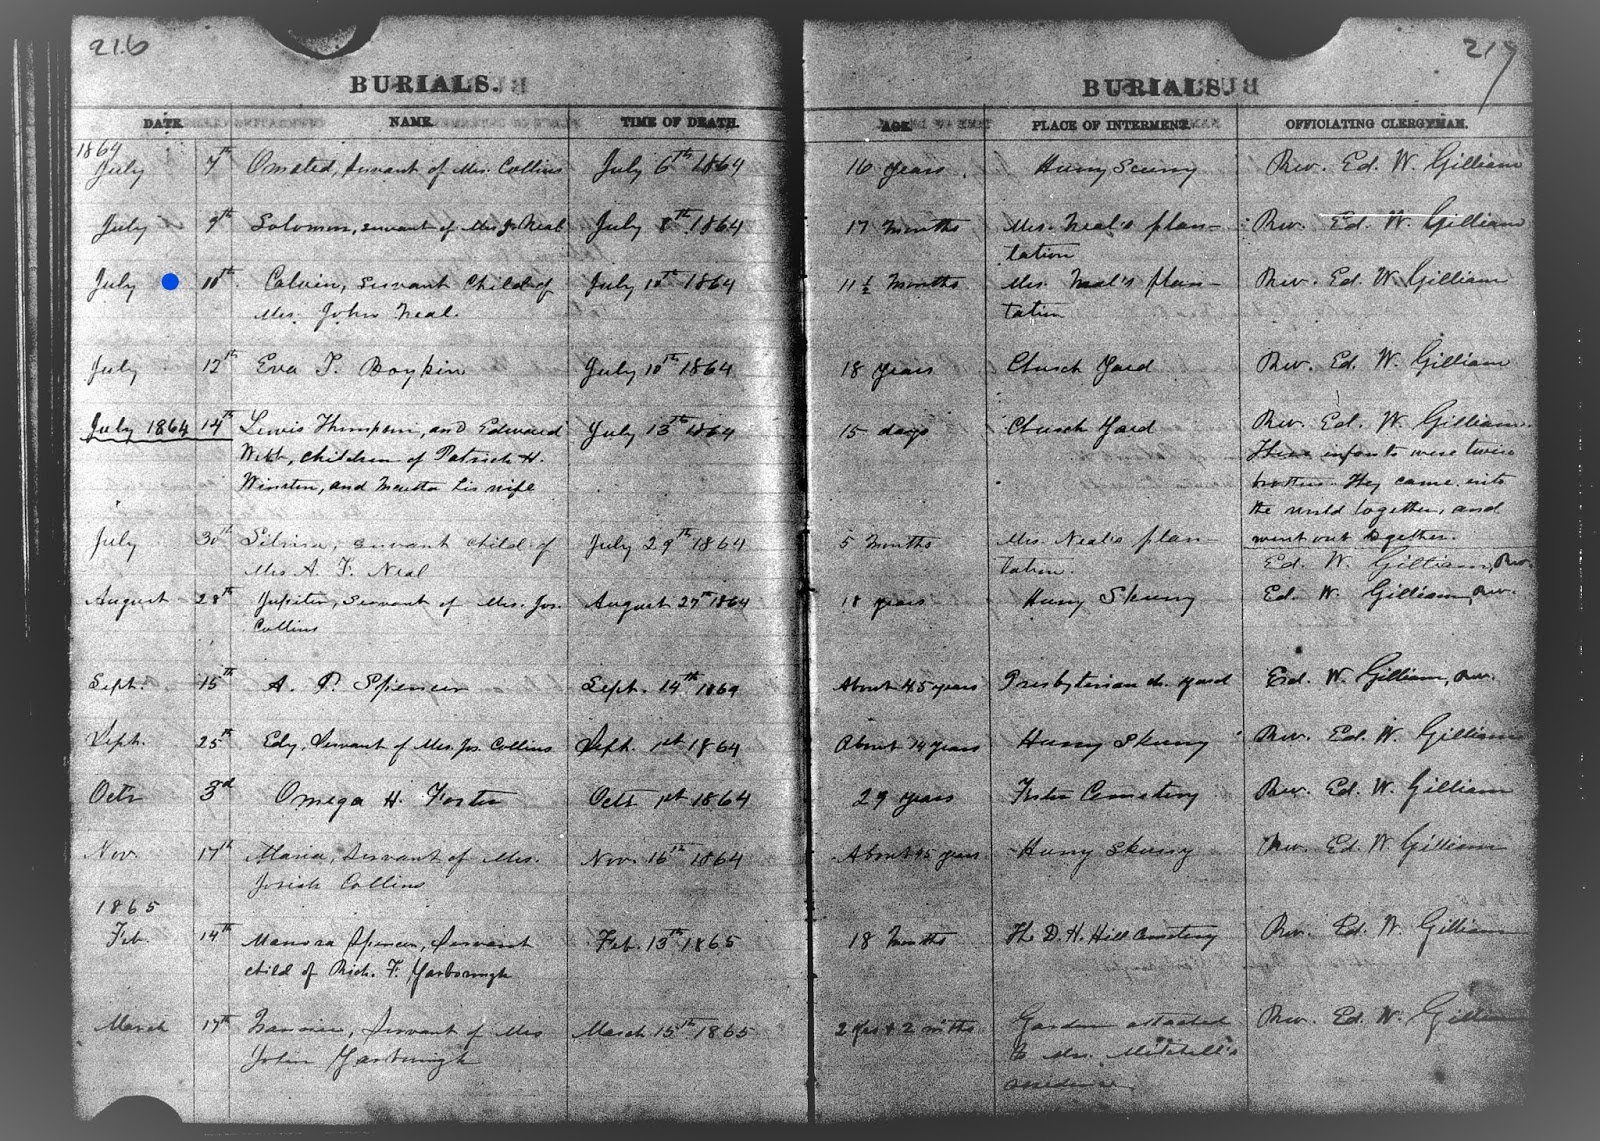 216
BURIALS.
DATE. NAME. TIME OF DEATH.
1864
July 7th Omsted, Servant of Mrs. Collins July 6th 1864
July 9th Solomon, servant of Mrs Jo Neal July 8th 1864
July 10th Calvin, Servant Child of July 10th 1864
Mrs. John Neal.
July 12th Eva P. Boykin July 10th 1864
July 1864 14th Lewis Thompson, and Edward July 13th 1864
Webb, children of Patrick H.
Winston, and his wife
July 30th servant child of July 29th 1864
Mrs A. F. Neal
August 28th Jupiter, Servant of Mrs. Jos. August 27th 1864
Collins
Sept. 15th A. P. Spencer Sept. 14th 1864
Sept. 25th Edy, Servant of Mrs. Jos. Collins Sept. 1st 1864
Octr 3d Omega H. Foster Octr 1st 1864
Nov. 17th Maria, Servant of Mrs. Nov. 16th 1864
Josiah Collins
1865
Feb. 14th Manora Spencer, Servant Feb. 13th 1865
child of Rich. F. Yarborough
March 17th Servant of Mrs March 15th 1865
John Yarborough
217
BURIALS.
AGE. PLACE OF INTERMENT. OFFICIATING CLERGYMAN.
16 years Hurry Scurry Rev. Ed. W. Gilliam
17 months Mrs. Neal's plan- Rev. Ed. W. Gilliam
tation
11 ½ months Mrs. Neal's plan- Rev. Ed. W. Gilliam
tation
18 years Church Yard Rev. Ed. W. Gilliam
15 days Church Yard Rev. Ed. W. Gilliam.
These infants were twin
brothers. They came into
the world together, and
went out together.
5 months Mrs. Neal's plan-
tation. Ed. W. Gilliam, Rev.
18 years Hurry Skurry Ed. W. Gilliam, Rev.
About 45 years Presbyterian ch. yard Ed. W. Gilliam, Rev.
About 14 years Hurry Skurry Rev. Ed. W. Gilliam
29 years Foster Cemetery Rev. Ed. W. Gilliam
About 45 years Hurry Skurry Rev. Ed. W. Gilliam
18 months The D. H. Hill Cemetery Rev. Ed. W. Gilliam
2 yrs & 2 mths Garden attached Rev. Ed. W. Gilliam
to Mr. Mitchell's
residence